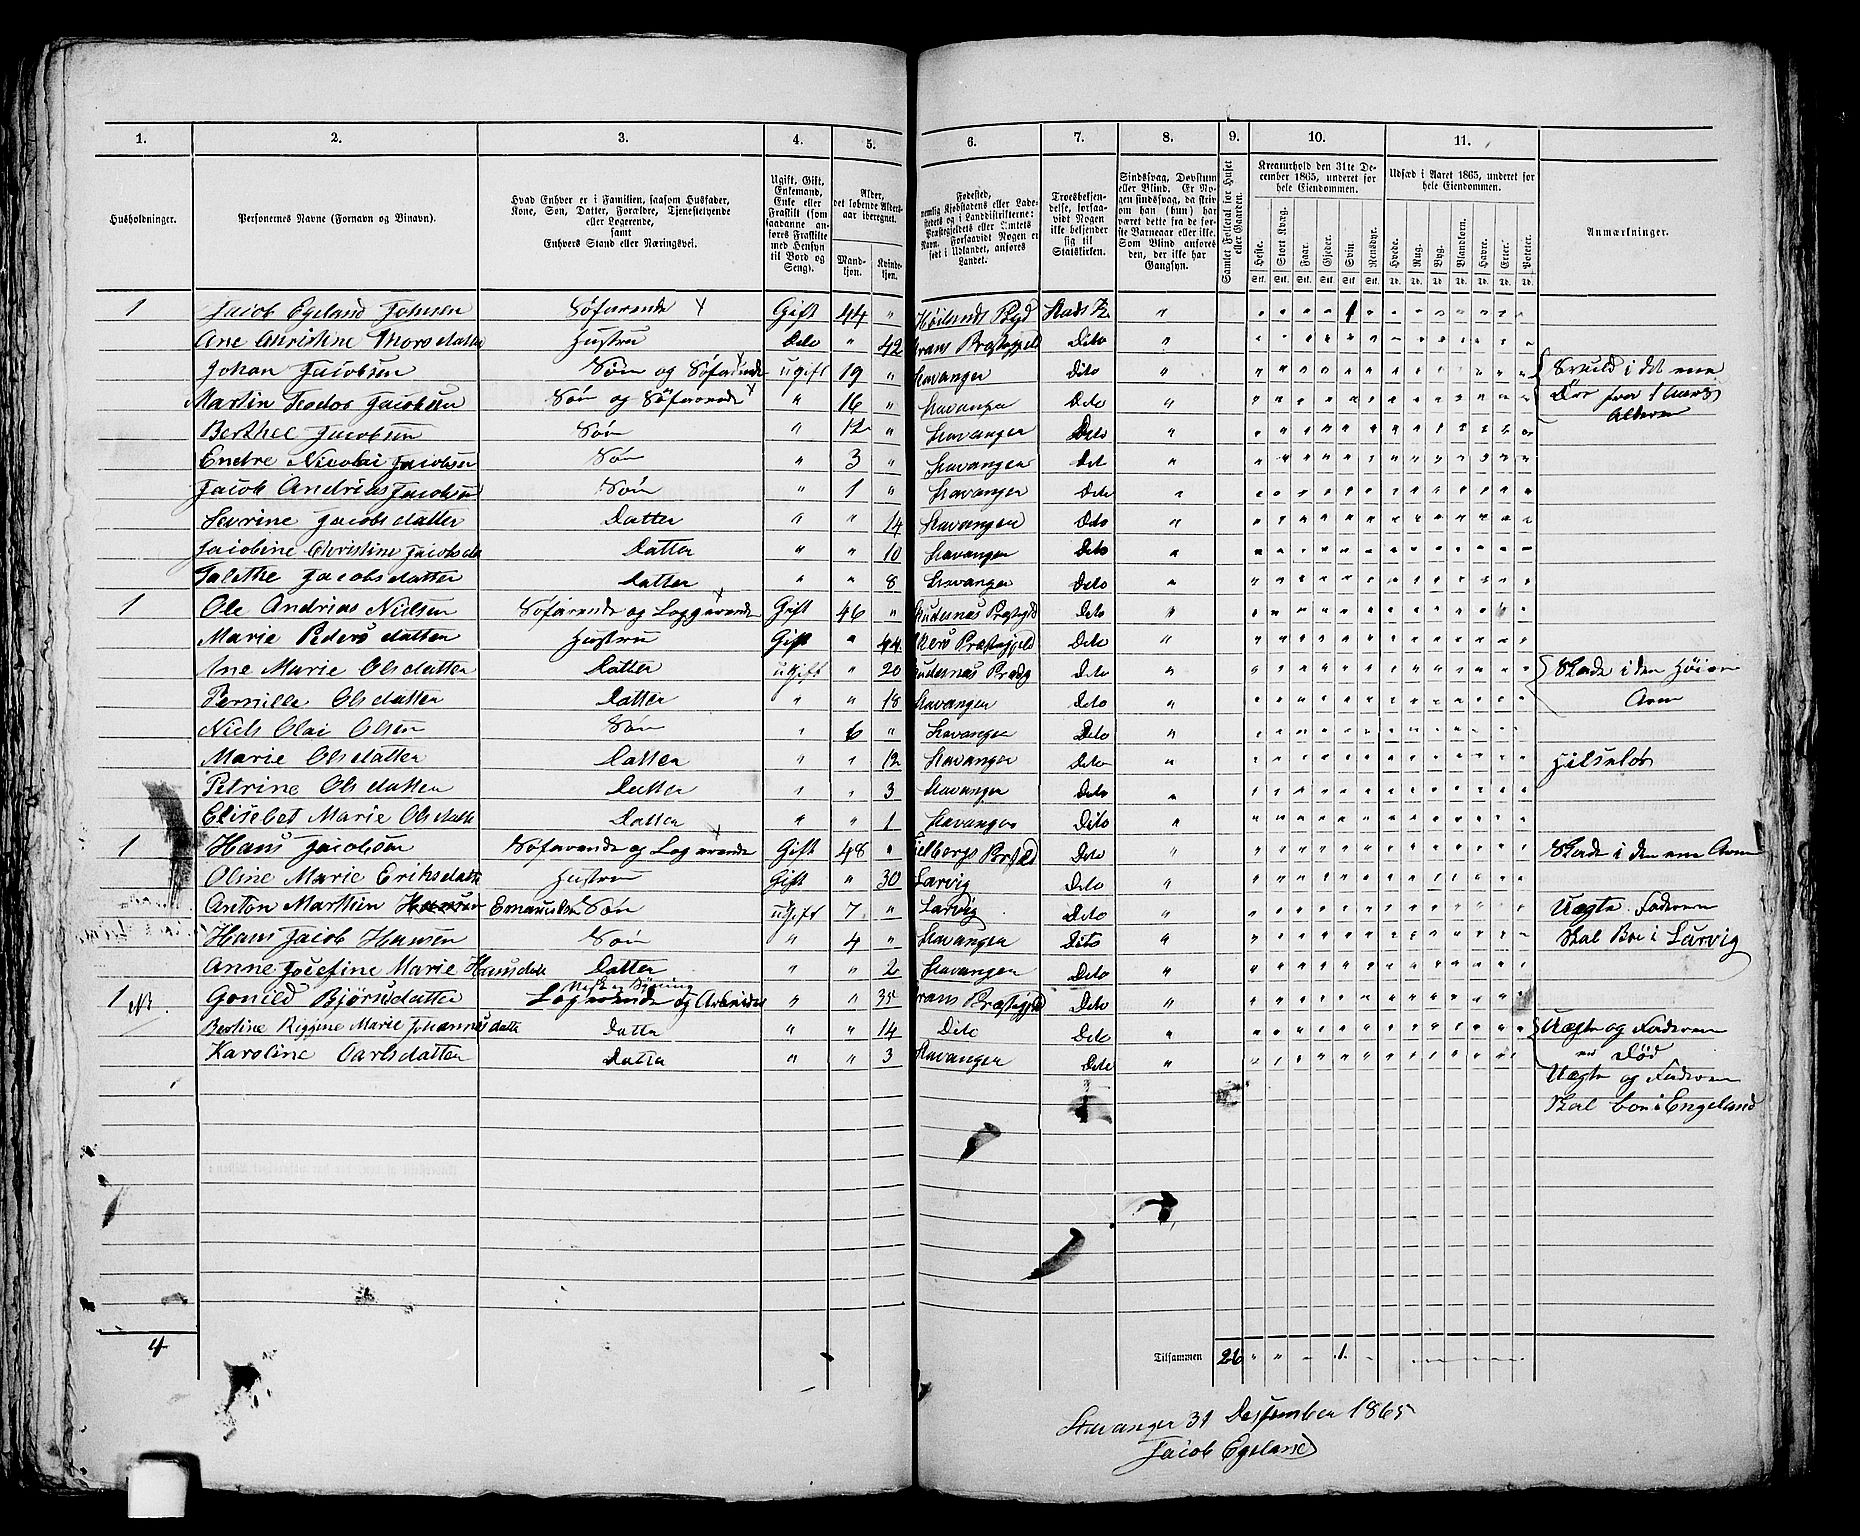 1. 2. 3. 4. 5. 6. 7. 8. 9. 10. 11.
Husholdninger.
Personernes Navne (Fornavn og Binavn).
Hvad Enhver er i Familien, saasom Husfader,
Kone, Søn, Datter, Forældre, Tjenestetyende
eller Logerende,
samt
Enhvers Stand eller Næringsvei.
Ugift, Gift,
Enkemand,
Enke eller
Fraskilt (som
saadanne an-
føres Fraskilte
med Hensyn
til Bord og
Seng).
Alder,
det løbende Alders-
aar iberegnet.
Mand-
kjøn.
Kvinde-
kjøn.
Fødested,
Troesbekjen-
delse, forsaa-
vidt Nogen
ikke bekjender
sig til
Statskirken.
Sindssvag, Døvstum
eller Blind. Er No-
gen sindssvag, da skriv
om han (hun) har
været dette fra de før-
ste Barneaar eller ikke.
Som Blind anføres
den, der ikke har
Gangsyn.
Samlet Folketal for Huset
eller Gaarden.
Kreaturhold den 31te De-
cember 1865, underet for
hele Eiendommen.
Heste. Stort Kvæg. Faar. Gjeder. Svin. Rensdyr.
Udsæd i Aaret 1865, underet for
hele Eiendommen.
Hvede. Rug. Byg. Blandkorn. Havre. Erter. Poteter.
Anmærkninger.
1 Jacob Egeland Johnsen Søfarende x Gift 44 " Stads K. " 1
Ane Christine Thorsdatter Hustru Dito " 42 Dito "
Johan Jacobsen Søn og Søfarende ugift 19 " Stavanger Dito "
Martin Teodor Jacobsen Søn og Søfarende x " 16 " Stavanger Dito "
Berthel Jacobsen Søn " 12 " Stavanger Dito "
Endre Nicolai Jacobsen Søn " 3 " Stavanger Dito "
Jacob Andrias Jacobsen Søn " 1 " Stavanger Dito "
Sevrine Jacobsdatter Datter " " 14 Stavanger Dito "
Jacobine Christine Jacobsda Datter " " 10 Stavanger Dito "
Talethe Jacobsdatter Datter " " 8 Stavanger Dito "
1 Ole Andrias Nielsen Søfarende og Loggerende Gift 46 " Dito "
Marie Pedersdatter Hustru Gift " 44 Dito "
Ane Marie Olsdatter Datter ugift " 20 Dito " Skade i den høire
Arm
Pernille Olsdatter Datter " " 18 Stavanger Dito "
Niels Olai Olsen Søn " 6 " Stavanger Dito "
Marie Olsdatter Datter " " 12 Stavanger Dito "
Petrine Olsdatter Datter " " 3 Stavanger Dito "
Elisebet Marie Olsdatte Datter " " 1 Stavanger Dito "
1 Hans Jacobsen Søfarende og Logerende Gift 48 " Dito " Skade i den ene Arm
Oline Marie Eriksdatte Hustru Gift " 30 Larvig Dito "
Anton Marthin Hansen Emanuelsen Søn ugift 7 " Larvig Dito " Uægte Faderen
Skal Boe i Larvig
Hans Jacob Hansen Søn " 4 " Stavanger Dito "
Anne Josefine Marie Hansdatte Datter " " 2 Stavanger Dito "
1 Gonild Bjørnsdatter Logerende og Arbeider " " 35 Dito "
Bertine Riggine Marie Johannesdatte Datter " " 14 Dito Dito " Uægte og Faderen
er død
Karoline Carlsdatter Datter " " 3 Stavanger Dito " Uægte og Faderen
Skal boe i Engeland
4 Tilsammen 26 1
Stavanger 31 Desember 1865
Jacob Egeland